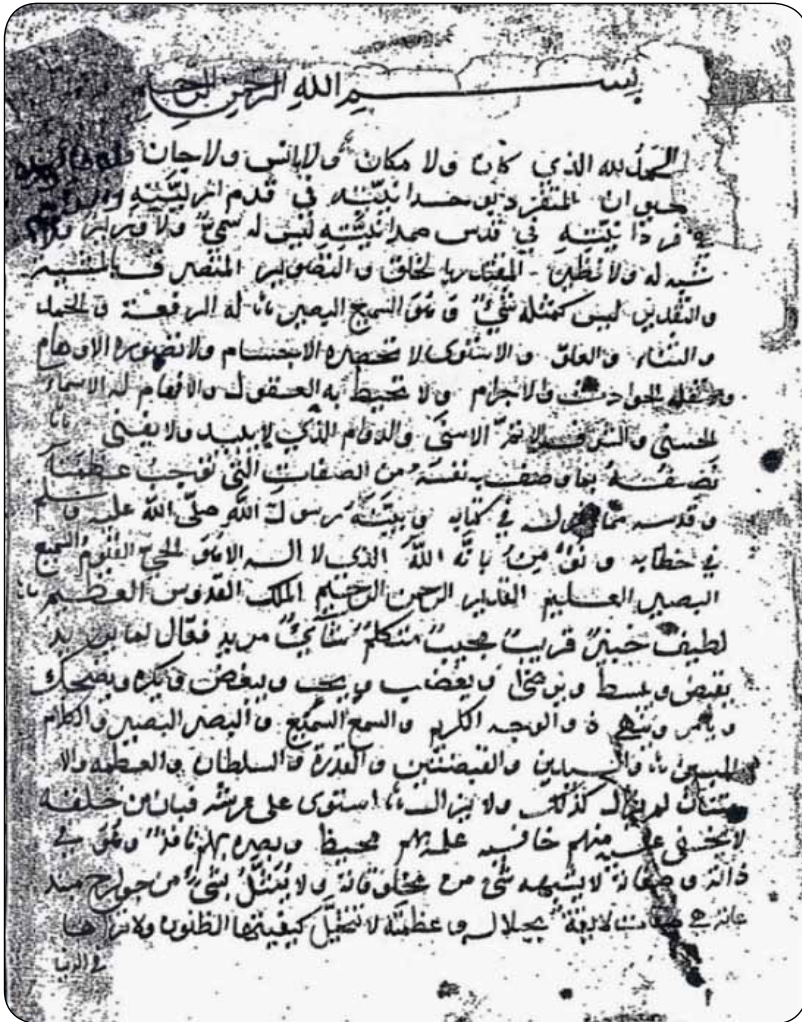 بسم الله الرحمن الرحيم
الحمد لله الذي كان ولا مكان ولا انس ولا جان ولا
حيوان المنفرد بوحدانيته في قدم ازليته والدائم
في فردانيته في قدس صمدانيته ليس له سمي ولا وزير ولا
شبيه له ولا نظير المقتدر بالخلق والتصوير المتصرف بالمشيئة
والتقدير ليس كمثله شيء وهو السميع البصير له الرفعة والحمد
والثناء والعلو والاستوى لا تحصره الاجسام ولا تصوره الاوهام
ولا تقله الحوادث والاجرام ولا تحيط به العقول والافهام له الاسماء
الحسنى والشرف الاتم الاسنى والدوام الذي لا يبيد ولا يفنى
نصفه بما وصف به نفسه من الصفات التي توجب عظمته
وقدسه مما انزله في كتابه وبينه رسول الله صلى الله عليه وسلم
في خطابه ونؤمن بانه الله الذي لا اله الا هو الحي القيوم السميع
البصير العليم القدير الرحمن الرحيم الملك القدوس العظيم
لطيف خبير قريب مجيب متكلم شآيي مريد فعال لما يريد
يقبض ويبسط ويرضى ويغضب ويحب ويبغض ويكره ويضحك
ويامر وينهى ذو الوجه الكريم والسمع السميع والبصر البصير والكلام
المبين واليدين والقبضتين والقدرة والسلطان والعظمة والا
متنان لم يزل كذلك ولا يزال استوى على عرشه فبان من خلقه
لا يخفى عليه منهم خافيه علمه بهم محيط وبصره بهم نافذ وهو في
ذاته وصفاته لا يشبهه شي من مخلوقاته ولا يمثل بشيء من جوارح مبتد
عاته هي صفات لائقة بجلاله وعظمته لا تتخيل كيفيتها الظنون ولا تراها
في الدنيا